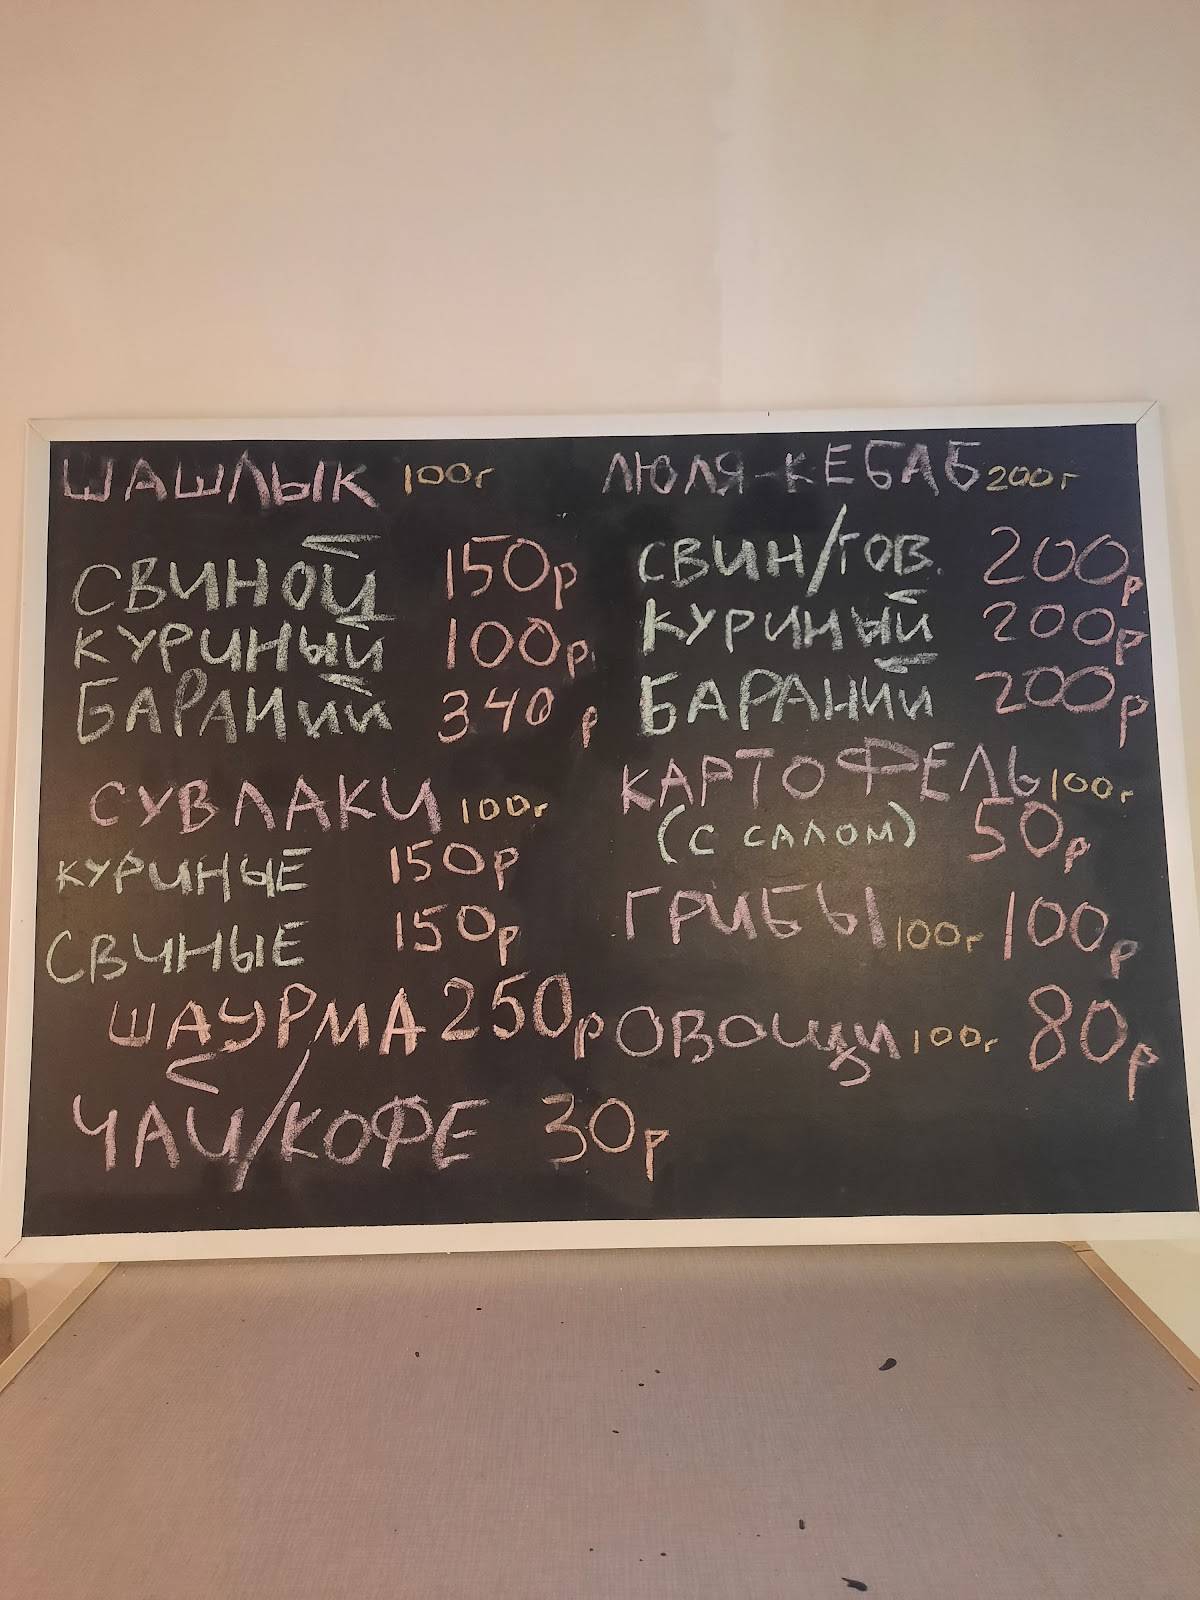 ШАШЛЫК 100г
СВИНОЙ 150р
КУРИНЫЙ 100р
БАРАНИЙ 340 р
СУВЛАКИ 100г
КУРИНЫЕ 150р
СВИНЫЕ 150р
ШАУРМА 250р
ЧАЙ/КОФЕ 30р
ЛЮЛЯ-КЕБАБ 200г
СВИН/ГОВ. 200р
КУРИНЫЙ 200р
БАРАНИЙ 200р
КАРТОФЕЛЬ 100г
(С САЛОМ) 50р
ГРИБЫ 100г 100р
ОВОЩИ 100г 80р